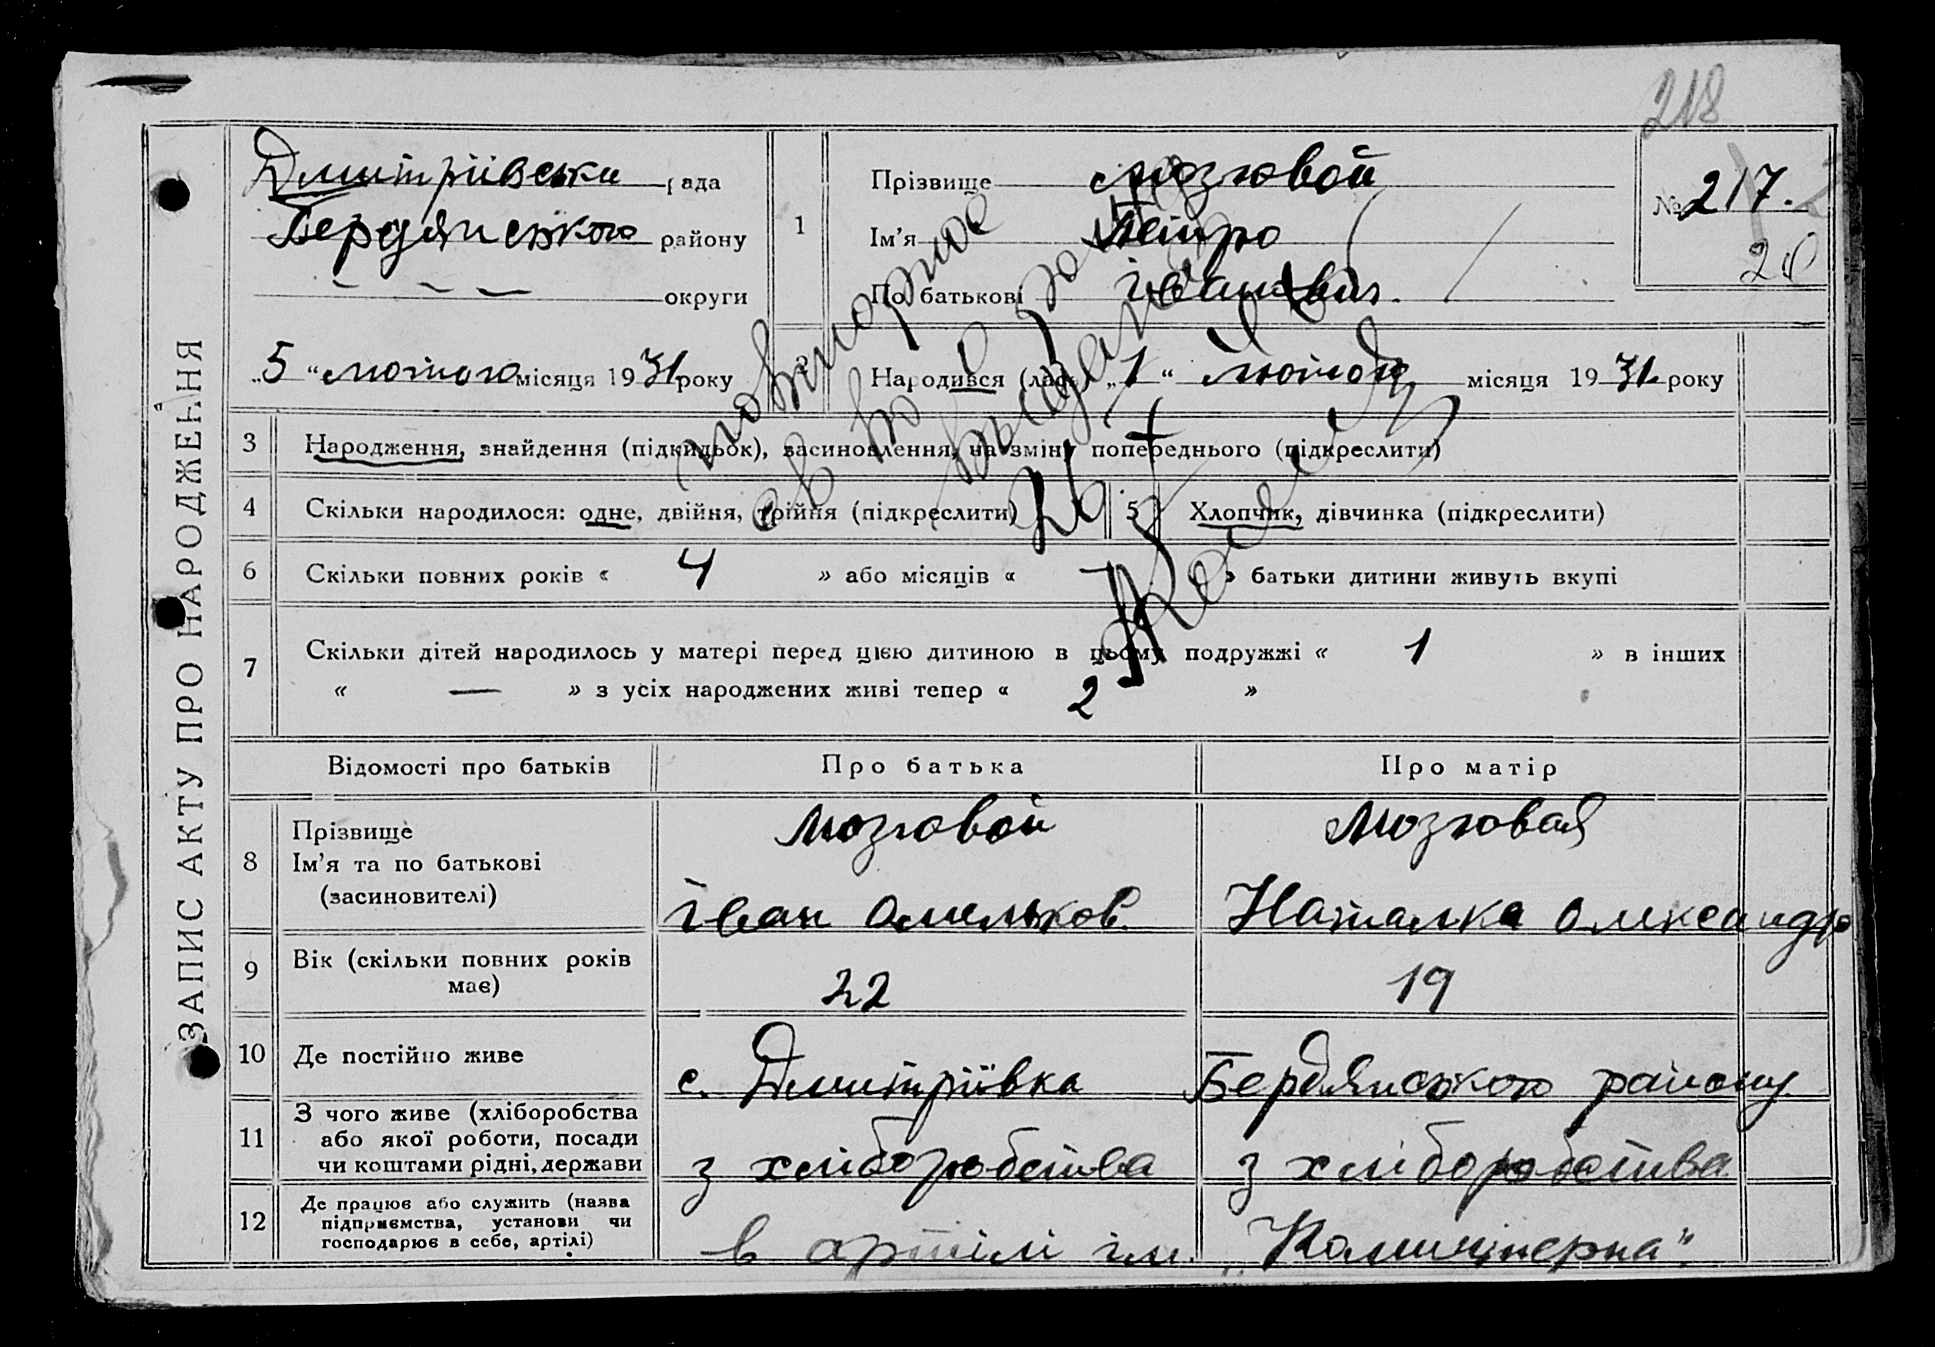 218
ЗАПИС АКТУ ПРО НАРОДЖЕННЯ
Дмитріївська рада
Бердянського району
— — — округи
„5“ лютого місяця 1931 року
1
Прізвище Мозговой
Ім’я Петро
По батькові Іванович
№ 217.
20
Народився „1“ Лютого місяця 1931 року
повторное
св во о рожд
выдано
3 Народження, знайдення (підкидьок), засиновлення, на зміну попереднього (підкреслити)
4 Скільки народилося: одне, двійня, трійня (підкреслити)
5 Хлопчик, дівчинка (підкреслити)
6 Скільки повних років « 4 » або місяців « » батьки дитини живуть вкупі
7 Скільки дітей народилось у матері перед цією дитиною в цьому подружжі « 1 » в інших
« — » з усіх народжених живі тепер « 2 »
Відомості про батьків Про батька Про матір
8 Прізвище
Ім’я та по батькові
(засиновителі)
Мозговой
Іван Омельков.
Мозговая
Наталка Олександр
9 Вік (скільки повних років
має)
22
19
10 Де постійно живе
с. Дмитріївка Бердянського району
11 З чого живе (хліборобства
або якої роботи, посади
чи коштами рідні, держави
з хліборобства
з хліборобства
12 Де працює або служить (назва
підприємства, установи чи
господарює в себе, артілі)
в артілі ім. „Комінтерна“.